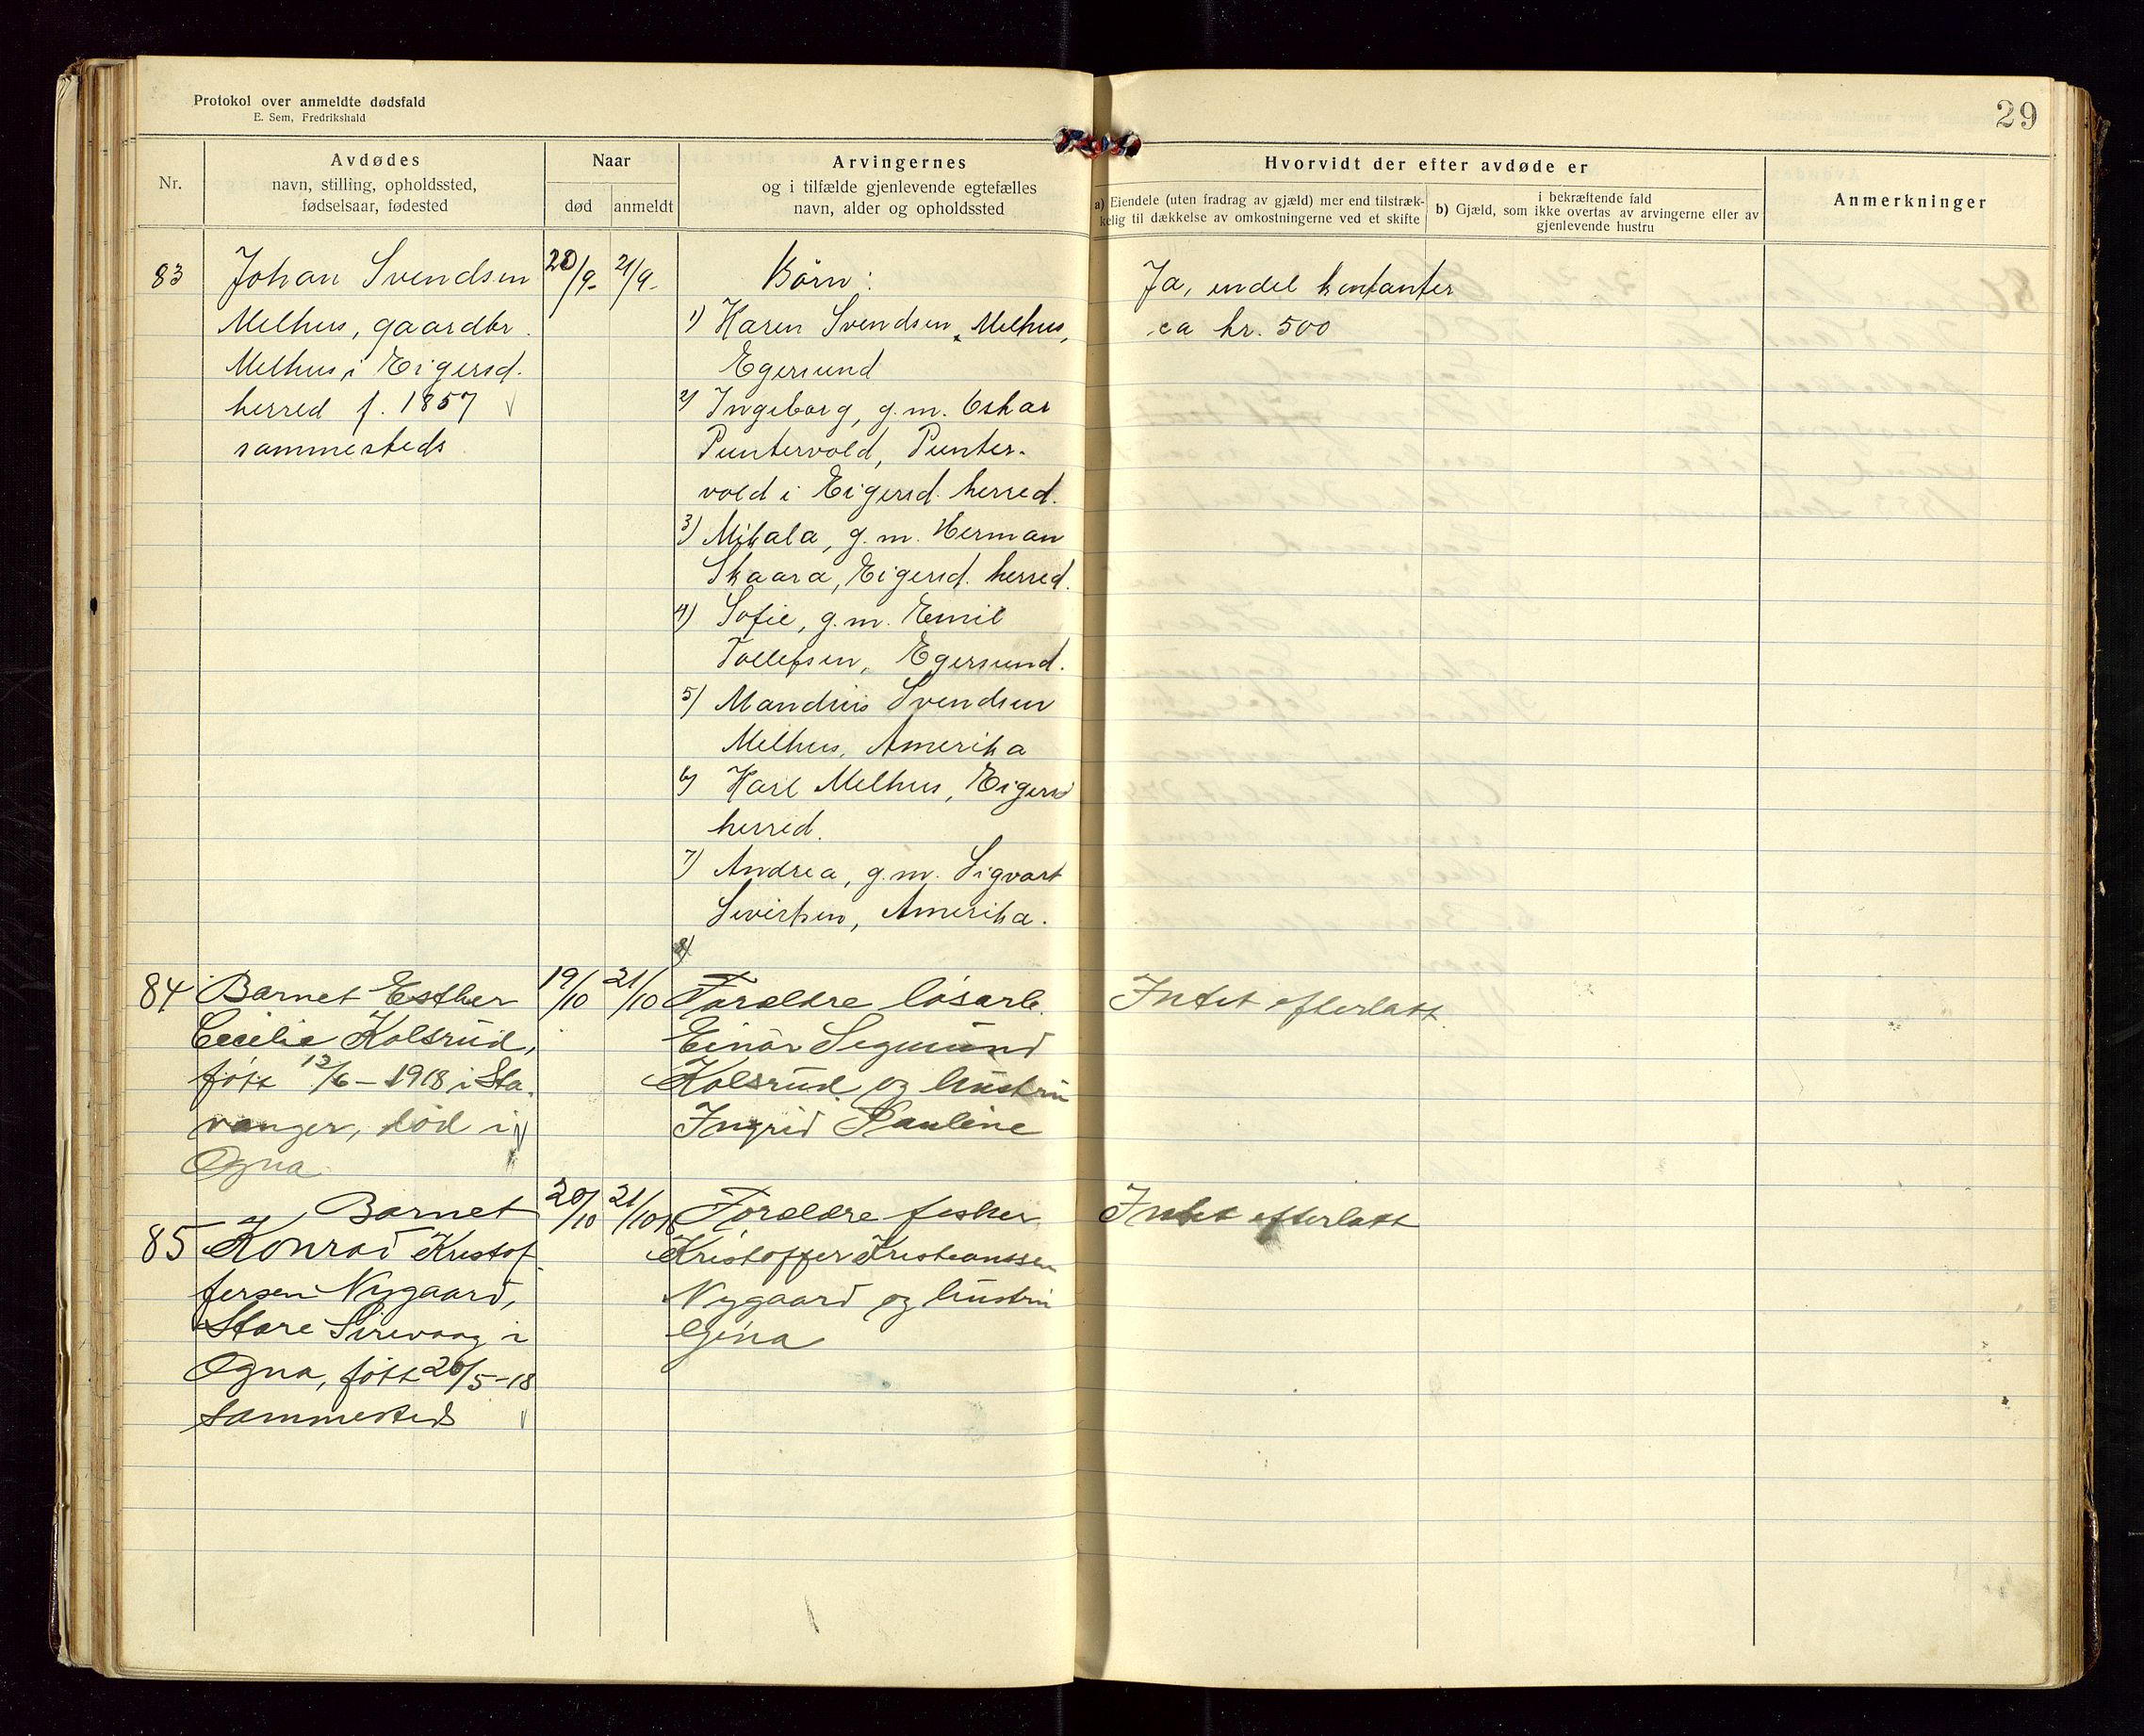 Protokol over anmeldte dødsfald
E. Sem, Fredrikshald
29
Nr.
Avdødes
navn, stilling, opholdssted,
fødselsaar, fødested
Naar
død
anmeldt
Arvingernes
og i tilfælde gjenlevende egtefælles
navn, alder og opholdssted
Hvorvidt der efter avdøde er
a) Eiendele (uten fradrag av gjæld) mer end tilstræk-
kelig til dækkelse av omkostningerne ved et skifte
b) Gjæld, som i bekræftende fald
ikke overtas av arvingerne eller av
gjenlevende hustru
Anmerkninger
83
Johan Svendsen
Melhus, gaardbr.
Melhus i Eigersd.
herred f. 1857
sammesteds
20/9-
21/9-
Børn:
1) Karen Svendsen Melhus,
Egersund
2) Ingeborg, g.m. Oskar
Puntervold, Punter-
vold i Eigersd. herred.
3) Mikala, g.m. Herman
Skaara, Eigersd. herred.
4) Sofie, g.m. Emil
Tollefsen, Egersund.
5) Mandius Svendsen
Melhus, Amerika
6) Karl Melhus, Eigersd
herred.
7) Andrea, g.m. Sigvart
Sivertsen, Amerika.
8)
Ja, endel kontanter
ca kr. 500
84
Barnet Esther
Cecilie Kolsrud,
født 12/6-1918 i Sta-
vanger, død i
Ogna
19/10
21/10
Forældre løsarb.
Einar Segmund
Kolsrud og hustru
Ingrid Pauline
Intet efterlatt
85
Barnet
Konrad Kristof-
fersen Nygaard,
Store Sirevaag i
Ogna, født 20/5-18
sammesteds
20/10
21/10 18
Forældre fisker
Kristoffer Kristianssen
Nygaard og hustru
Gina
Intet efterlatt